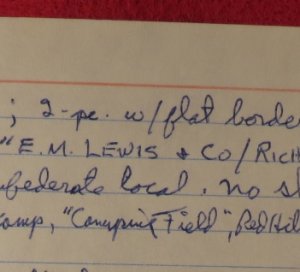 ; 2-pc. w/flat borde
"E.M. LEWIS & CO/RICH
federate local. no s
Camp, "Camping Field", Red Hil